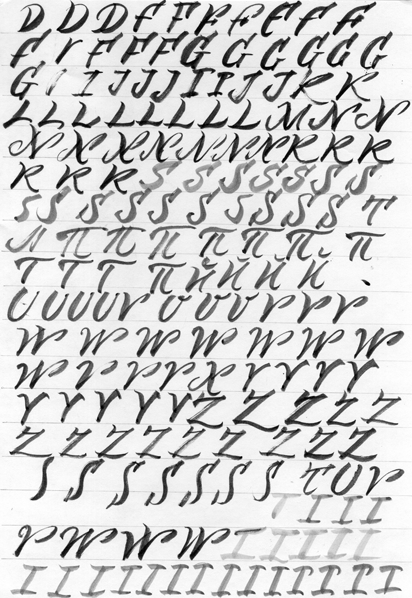 D D D F F F F F F F
F I F F F G G G G G G
G I I J J J I I J J R K
L L L L L L L L M N N
N X X X N N N R R R R
R R R R S S S S S S S
S S S S S S S S S S T
Л П П П П П П П
T T T П Й Й Й Й
U U U U V U U V V V V
W W W W W W W W
W V V V V X Y Y Y Y
Y Y Y Y Y Z Z Z Z Z Z
Z Z Z Z Z Z Z Z Z Z
S S S S S S S T U V
T I I I
V W W W W I I I I I
I I I I I I I I I I I I I I I